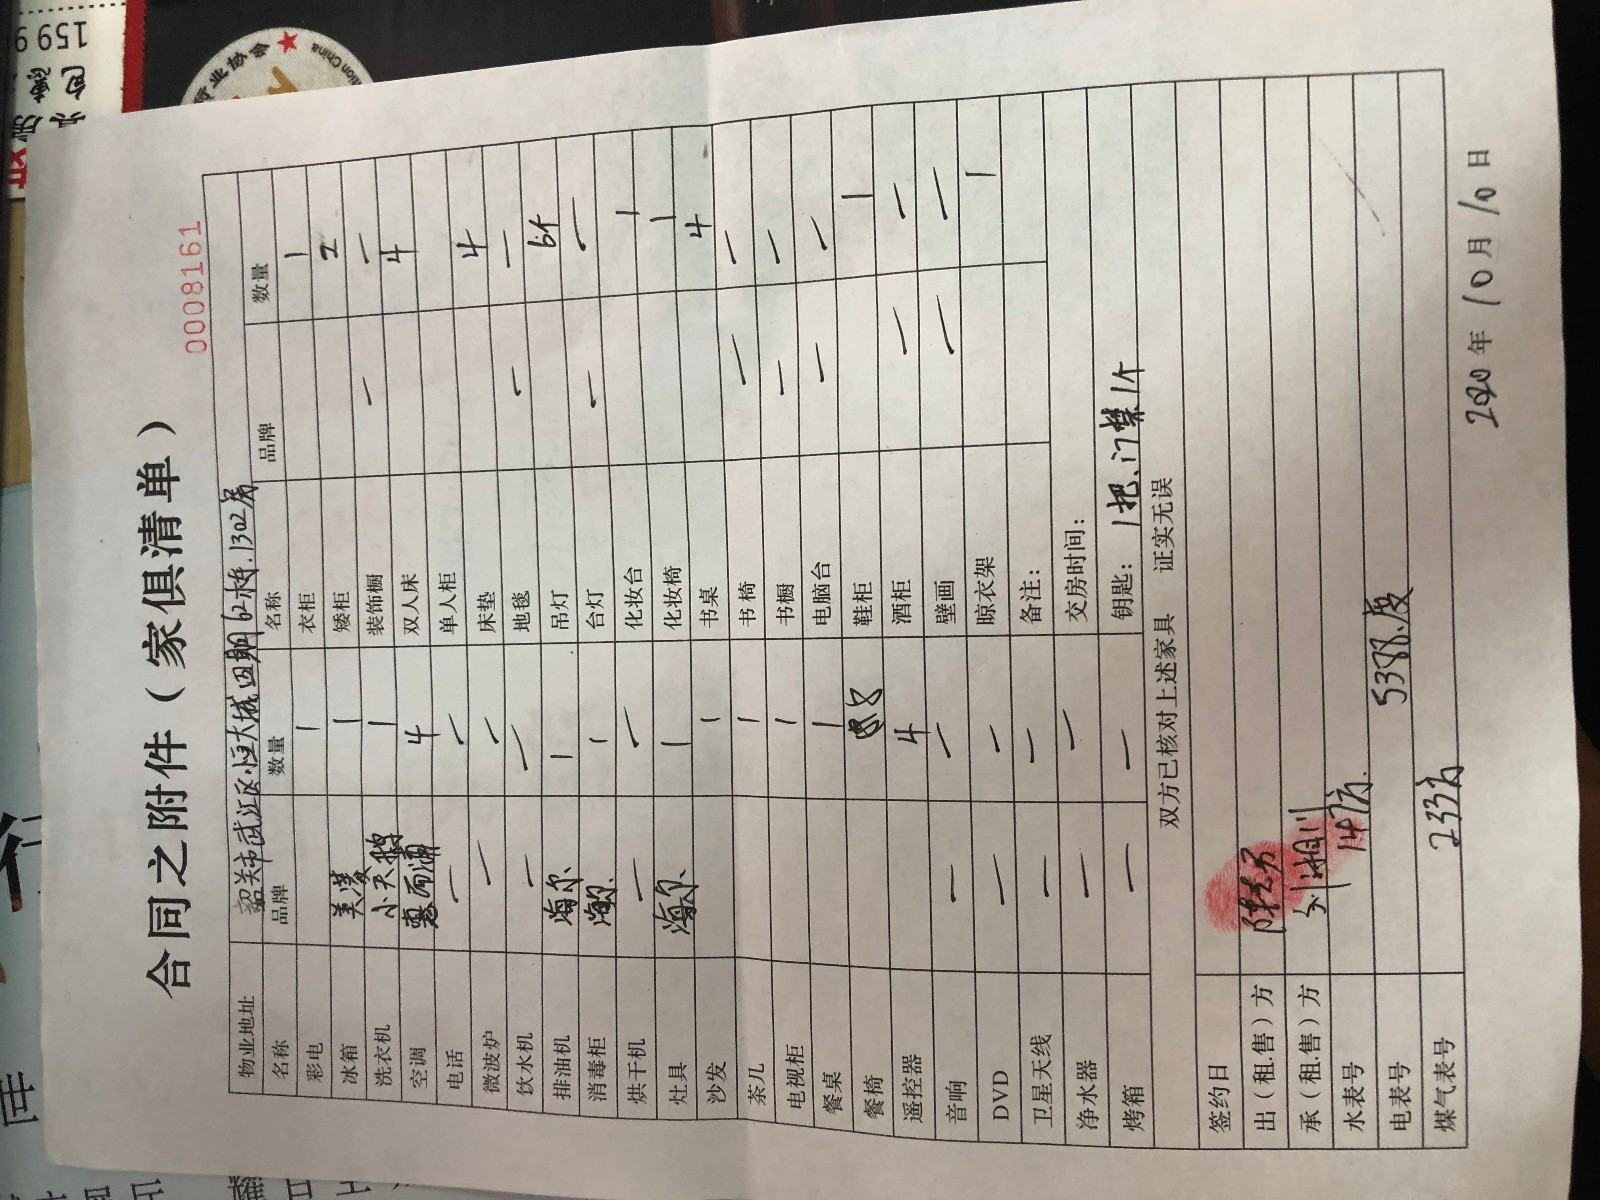 合同之附件（家俱清单）
0008161
物业地址 韶关市武江区恒大城四期62栋.1302房
名称 品牌 数量 名称 品牌 数量
彩电 1 衣柜 1
冰箱 美菱 1 矮柜 2
洗衣机 小天鹅 1 装饰橱 一 一
空调 惠而浦 4 双人床 4
电话 一 一 单人柜
微波炉 一 一 床垫 4
饮水机 一 一 地毯 一 一
排油机 海尔 1 吊灯 6个
消毒柜 海尔 1 台灯 一 一
烘干机 一 一 化妆台 1
灶具 海尔 1 化妆椅 1
沙发 1 书桌 4
茶几 1 书椅 一 一
电视柜 1 书橱 一 一
餐桌 1 电脑台 一 一
餐椅 8 鞋柜 1
遥控器 4 酒柜 一 一
音响 一 一 壁画 一 一
DVD 一 一 晾衣架 1
卫星天线 一 一 备注：
净水器 一 一 交房时间：
烤箱 一 一 钥匙： 1把、门禁1个
双方已核对上述家具 证实无误
签约日
出（租.售）方
承（租.售）方 刘湘川
水表号 147方.
电表号 5388.度
煤气表号 233方
2020年10月10日
159
行业协会
tion China